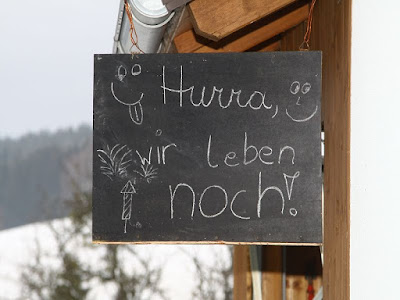 Hurra,
wir leben
noch!